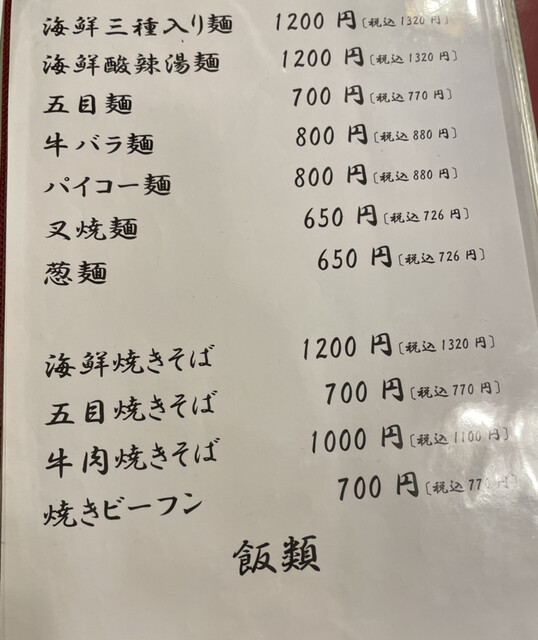 海鮮三種入り麺 1200円〔税込1320円〕
海鮮酸辣湯麺 1200円〔税込1320円〕
五目麺 700円〔税込770円〕
牛バラ麺 800円〔税込880円〕
パイコー麺 800円〔税込880円〕
叉焼麺 650円〔税込726円〕
葱麺 650円〔税込726円〕
海鮮焼きそば 1200円〔税込1320円〕
五目焼きそば 700円〔税込770円〕
牛肉焼きそば 1000円〔税込1100円〕
焼きビーフン 700円〔税込
飯類